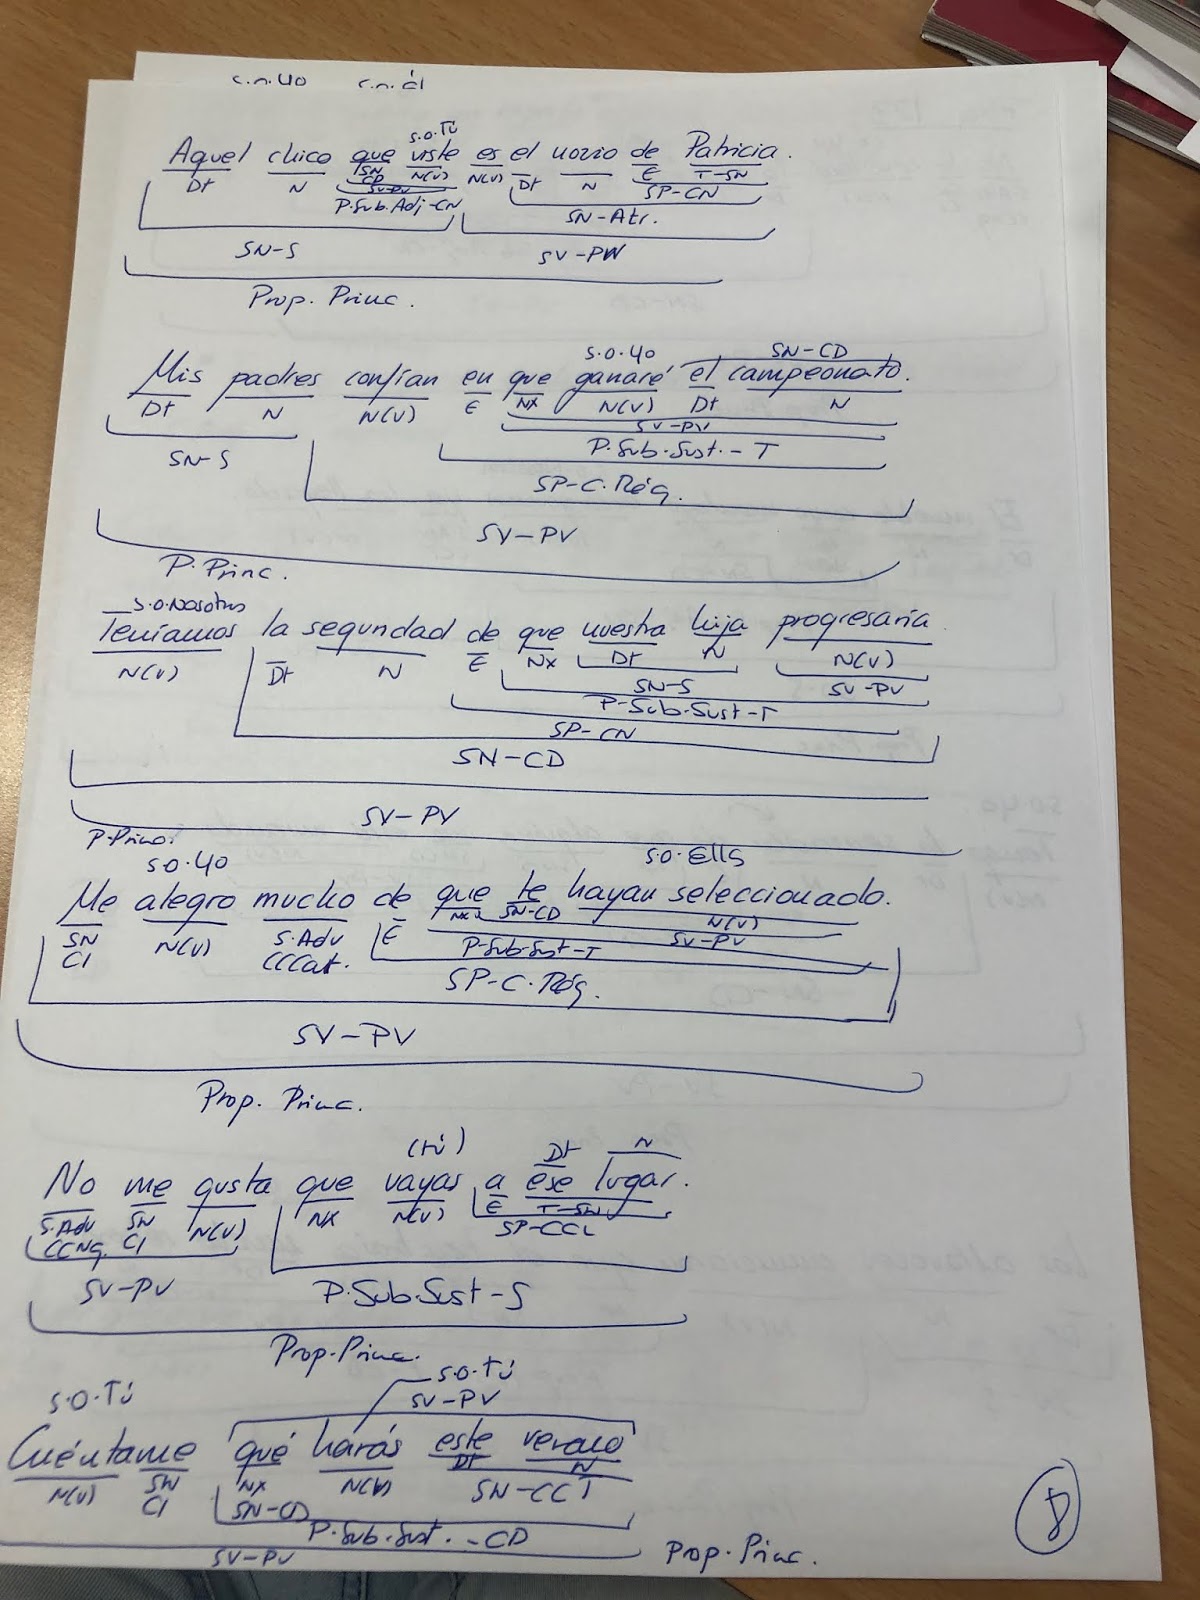 c.n.yo c.n.él
S.O.Tú
Aquel chico que viste es el novio de Patricia.
Dt N SN N(V) N(V) Dt N E T-SN
CD
SV-PV SP-CN
P.Sub.Adj-CN SN-Atr.
SN-S SV-PN
Prop. Princ.
S.O.Yo SN-CD
Mis padres confían en que ganaré el campeonato.
Dt N N(V) E NX N(V) Dt N
SV-PV
P.Sub.Sust.-T
SN-S SP-C.Rég.
SV-PV
P.Princ.
S.O.Nosotros
Teníamos la seguridad de que nuestra hija progresaría.
N(V) Dt N E NX Dt N N(V)
SN-S SV-PV
P-Sub-Sust-T
SP-CN
SN-CD
SV-PV
P.Princ.
S.O.Yo S.O.Ells
Me alegro mucho de que te hayan seleccionado.
SN N(V) S.Adv E NX SN-CD N(V)
CI CCCat. P-Sub-Sust-T SV-PV
SP-C.Rég.
SV-PV
Prop. Princ.
(tú) Dt N
No me gusta que vayas a ese lugar.
S.Adv SN N(V) NX N(V) E T-SN
CCNg. CI SP-CCL
SV-PV P.Sub.Sust-S
Prop.Princ.
S.O.Tú S.O.Tú
SV-PV
Cuéntame qué harás este verano
N(V) SN NX N(V) Dt N
CI SN-CD SN-CCT
P.Sub.Sust.-CD
SV-PV Prop.Princ.
8